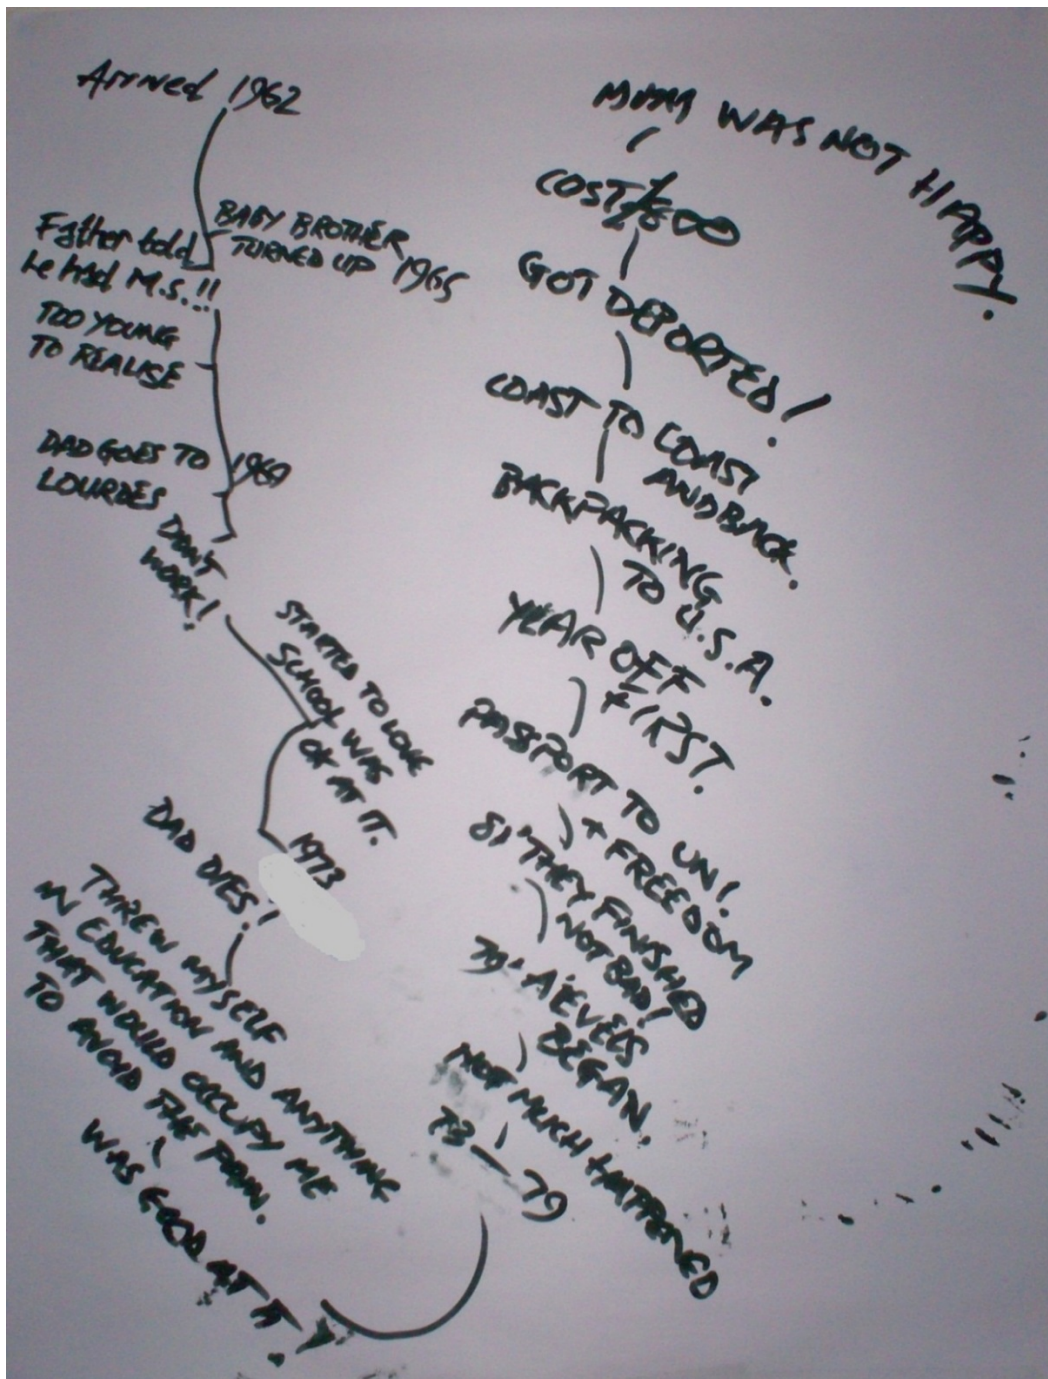 Arrived 1962
BABY BROTHER
TURNED UP 1965
Father told
he had M.S.!!
TOO YOUNG
TO REALISE
1969
DAD GOES TO
LOURDES
DON'T
WORK!
STARTED TO LOVE
SCHOOL WAS
OK AT IT.
1973
DAD DIES!
THREW MYSELF
IN EDUCATION AND ANYTHING
THAT WOULD OCCUPY ME
TO AVOID THE PAIN.
WAS GOOD AT IT.
73 - 79
NOT MUCH HAPPENED
79' 'A'LEVELS
BEGAN.
81' THEY FINISHED
NOT BAD!
PASSPORT TO UNI!
+ FREEDOM
YEAR OFF
FIRST.
BACKPACKING
TO U.S.A.
COAST TO COAST
AND BACK.
GOT DEPORTED!
COST
MUM WAS NOT HAPPY.